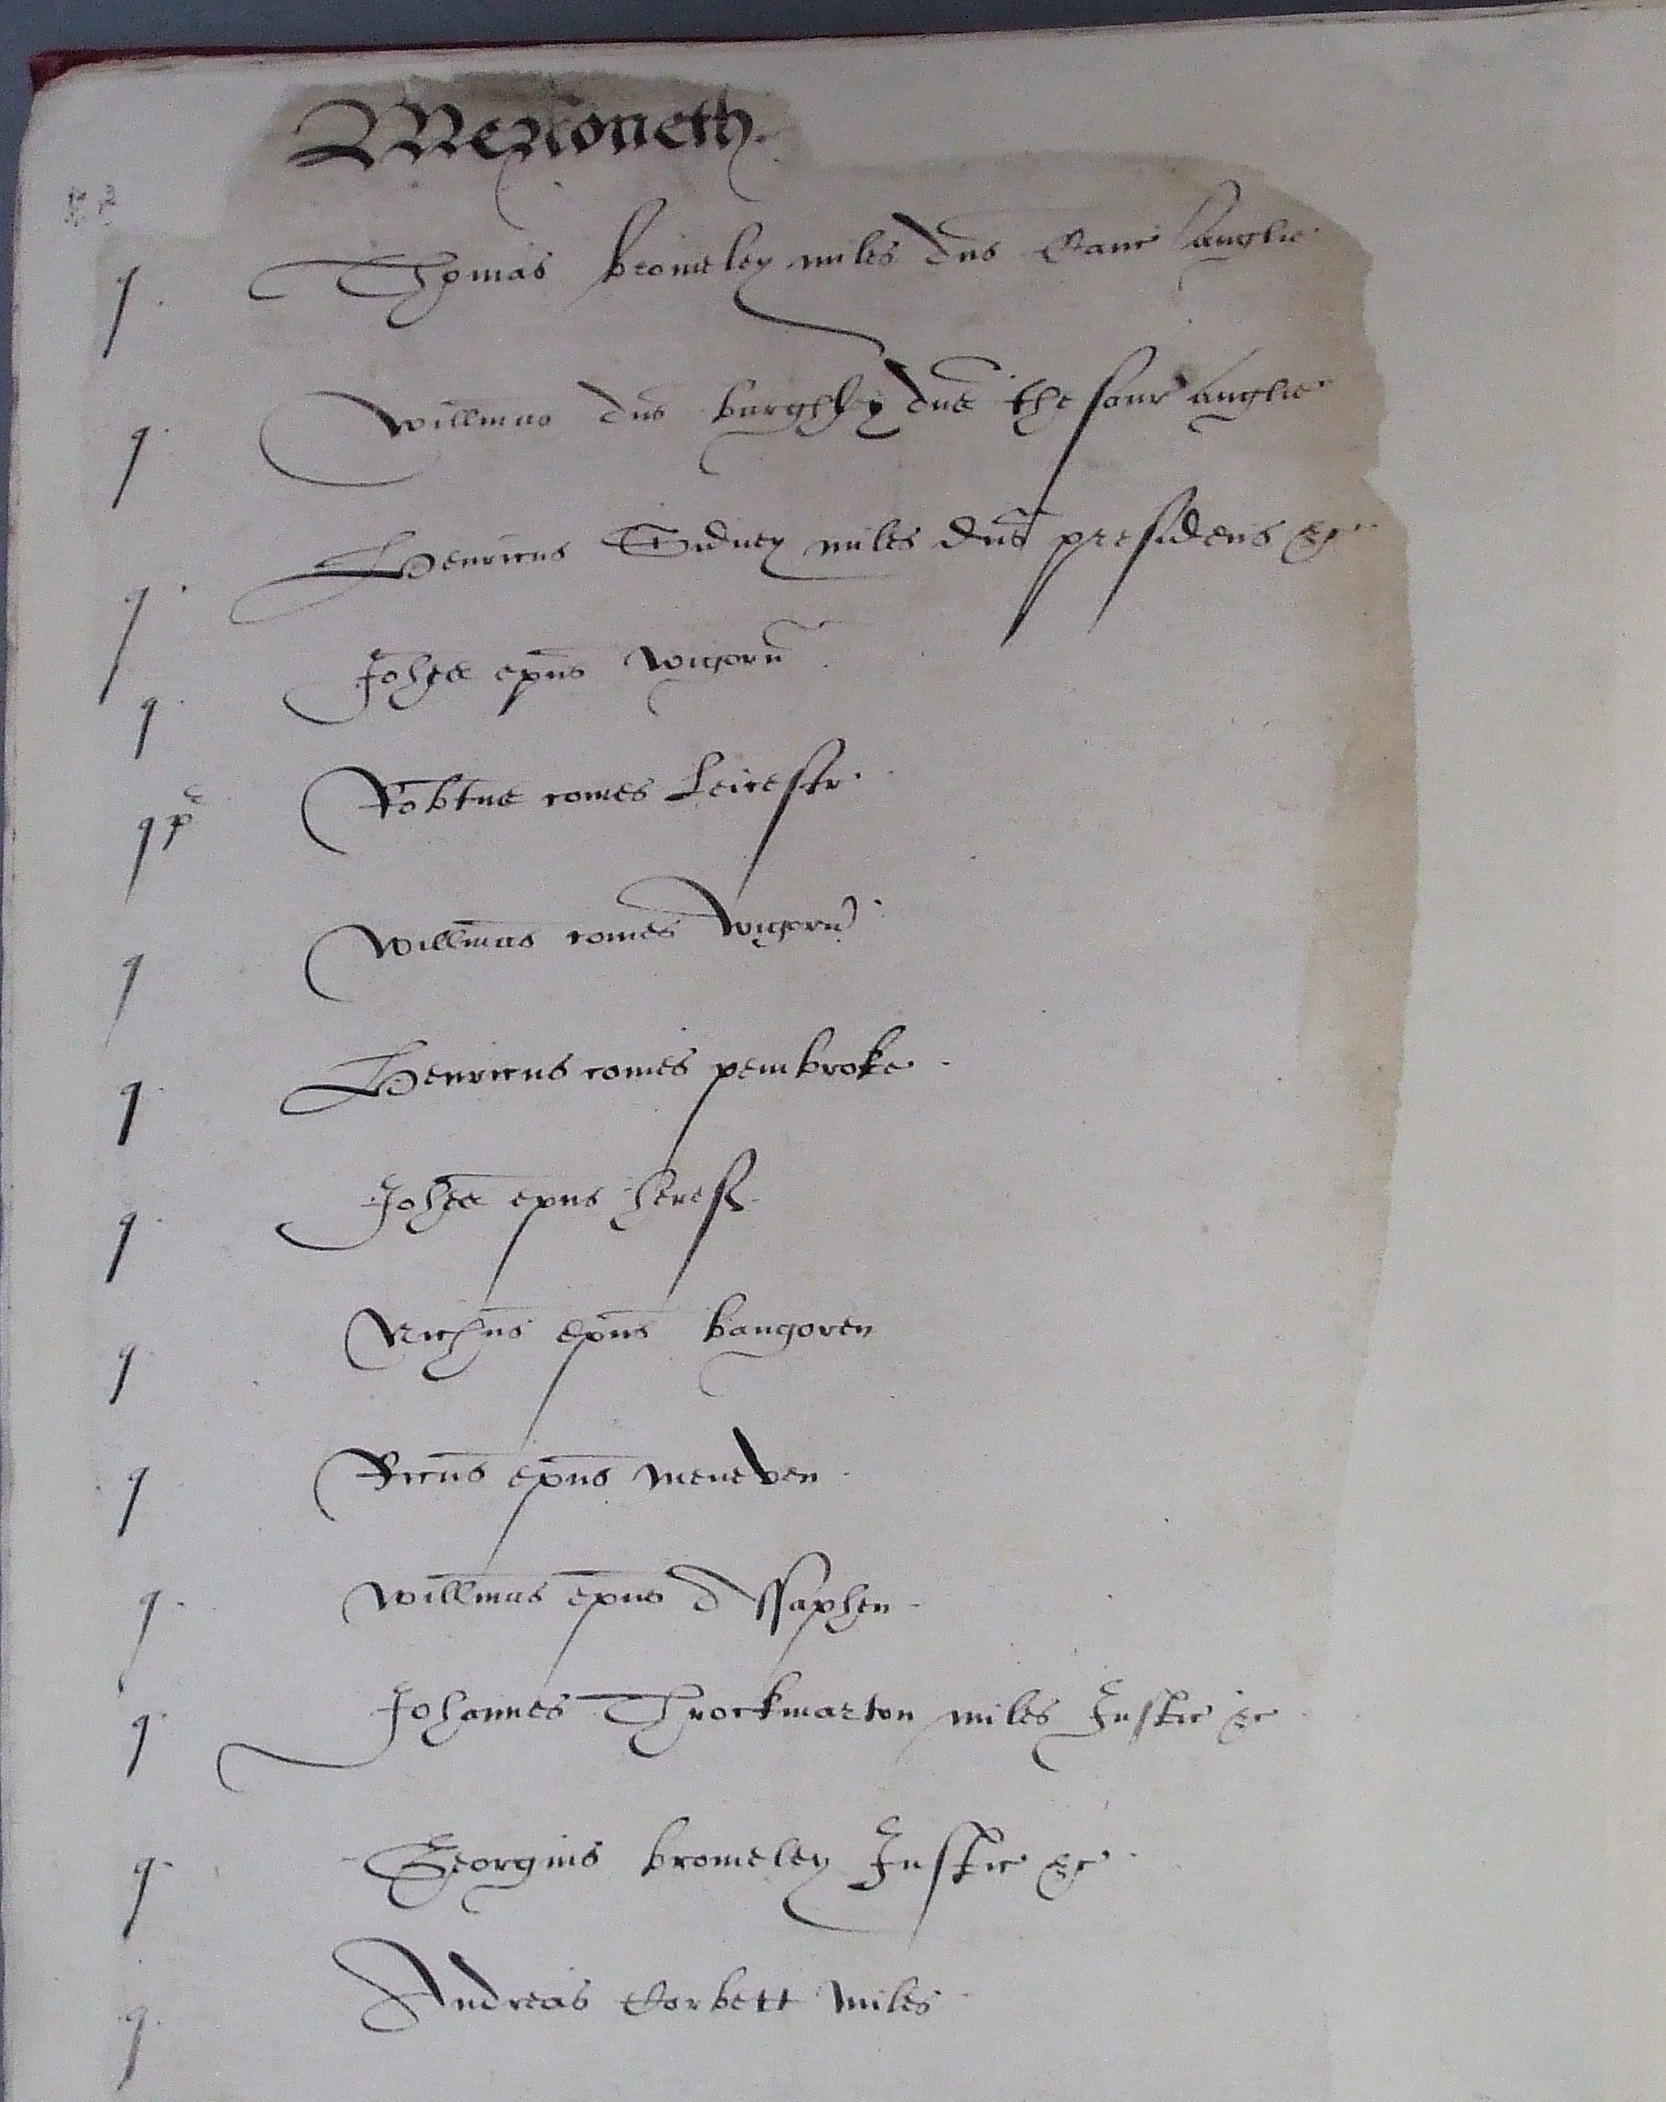 Merioneth.
q Thomas Bromeley miles dns Canc Anglie
q Willmus dns Burghley dns thesaur Anglie
q Henricus Sidney miles dns presidens &c
q Johes epus Wigorn
q p Robtus comes Leicestr
q Willmus comes Wigorn
q Henricus comes pembroke
q Johes epus heref
q Nichus epus bangoren
q Ricus epus meneven
q Willmus epus d Assaphen
q Johannes Throckmarton miles Justic &c
q Georgius bromeley Justic &c
q Andreas Corbett miles